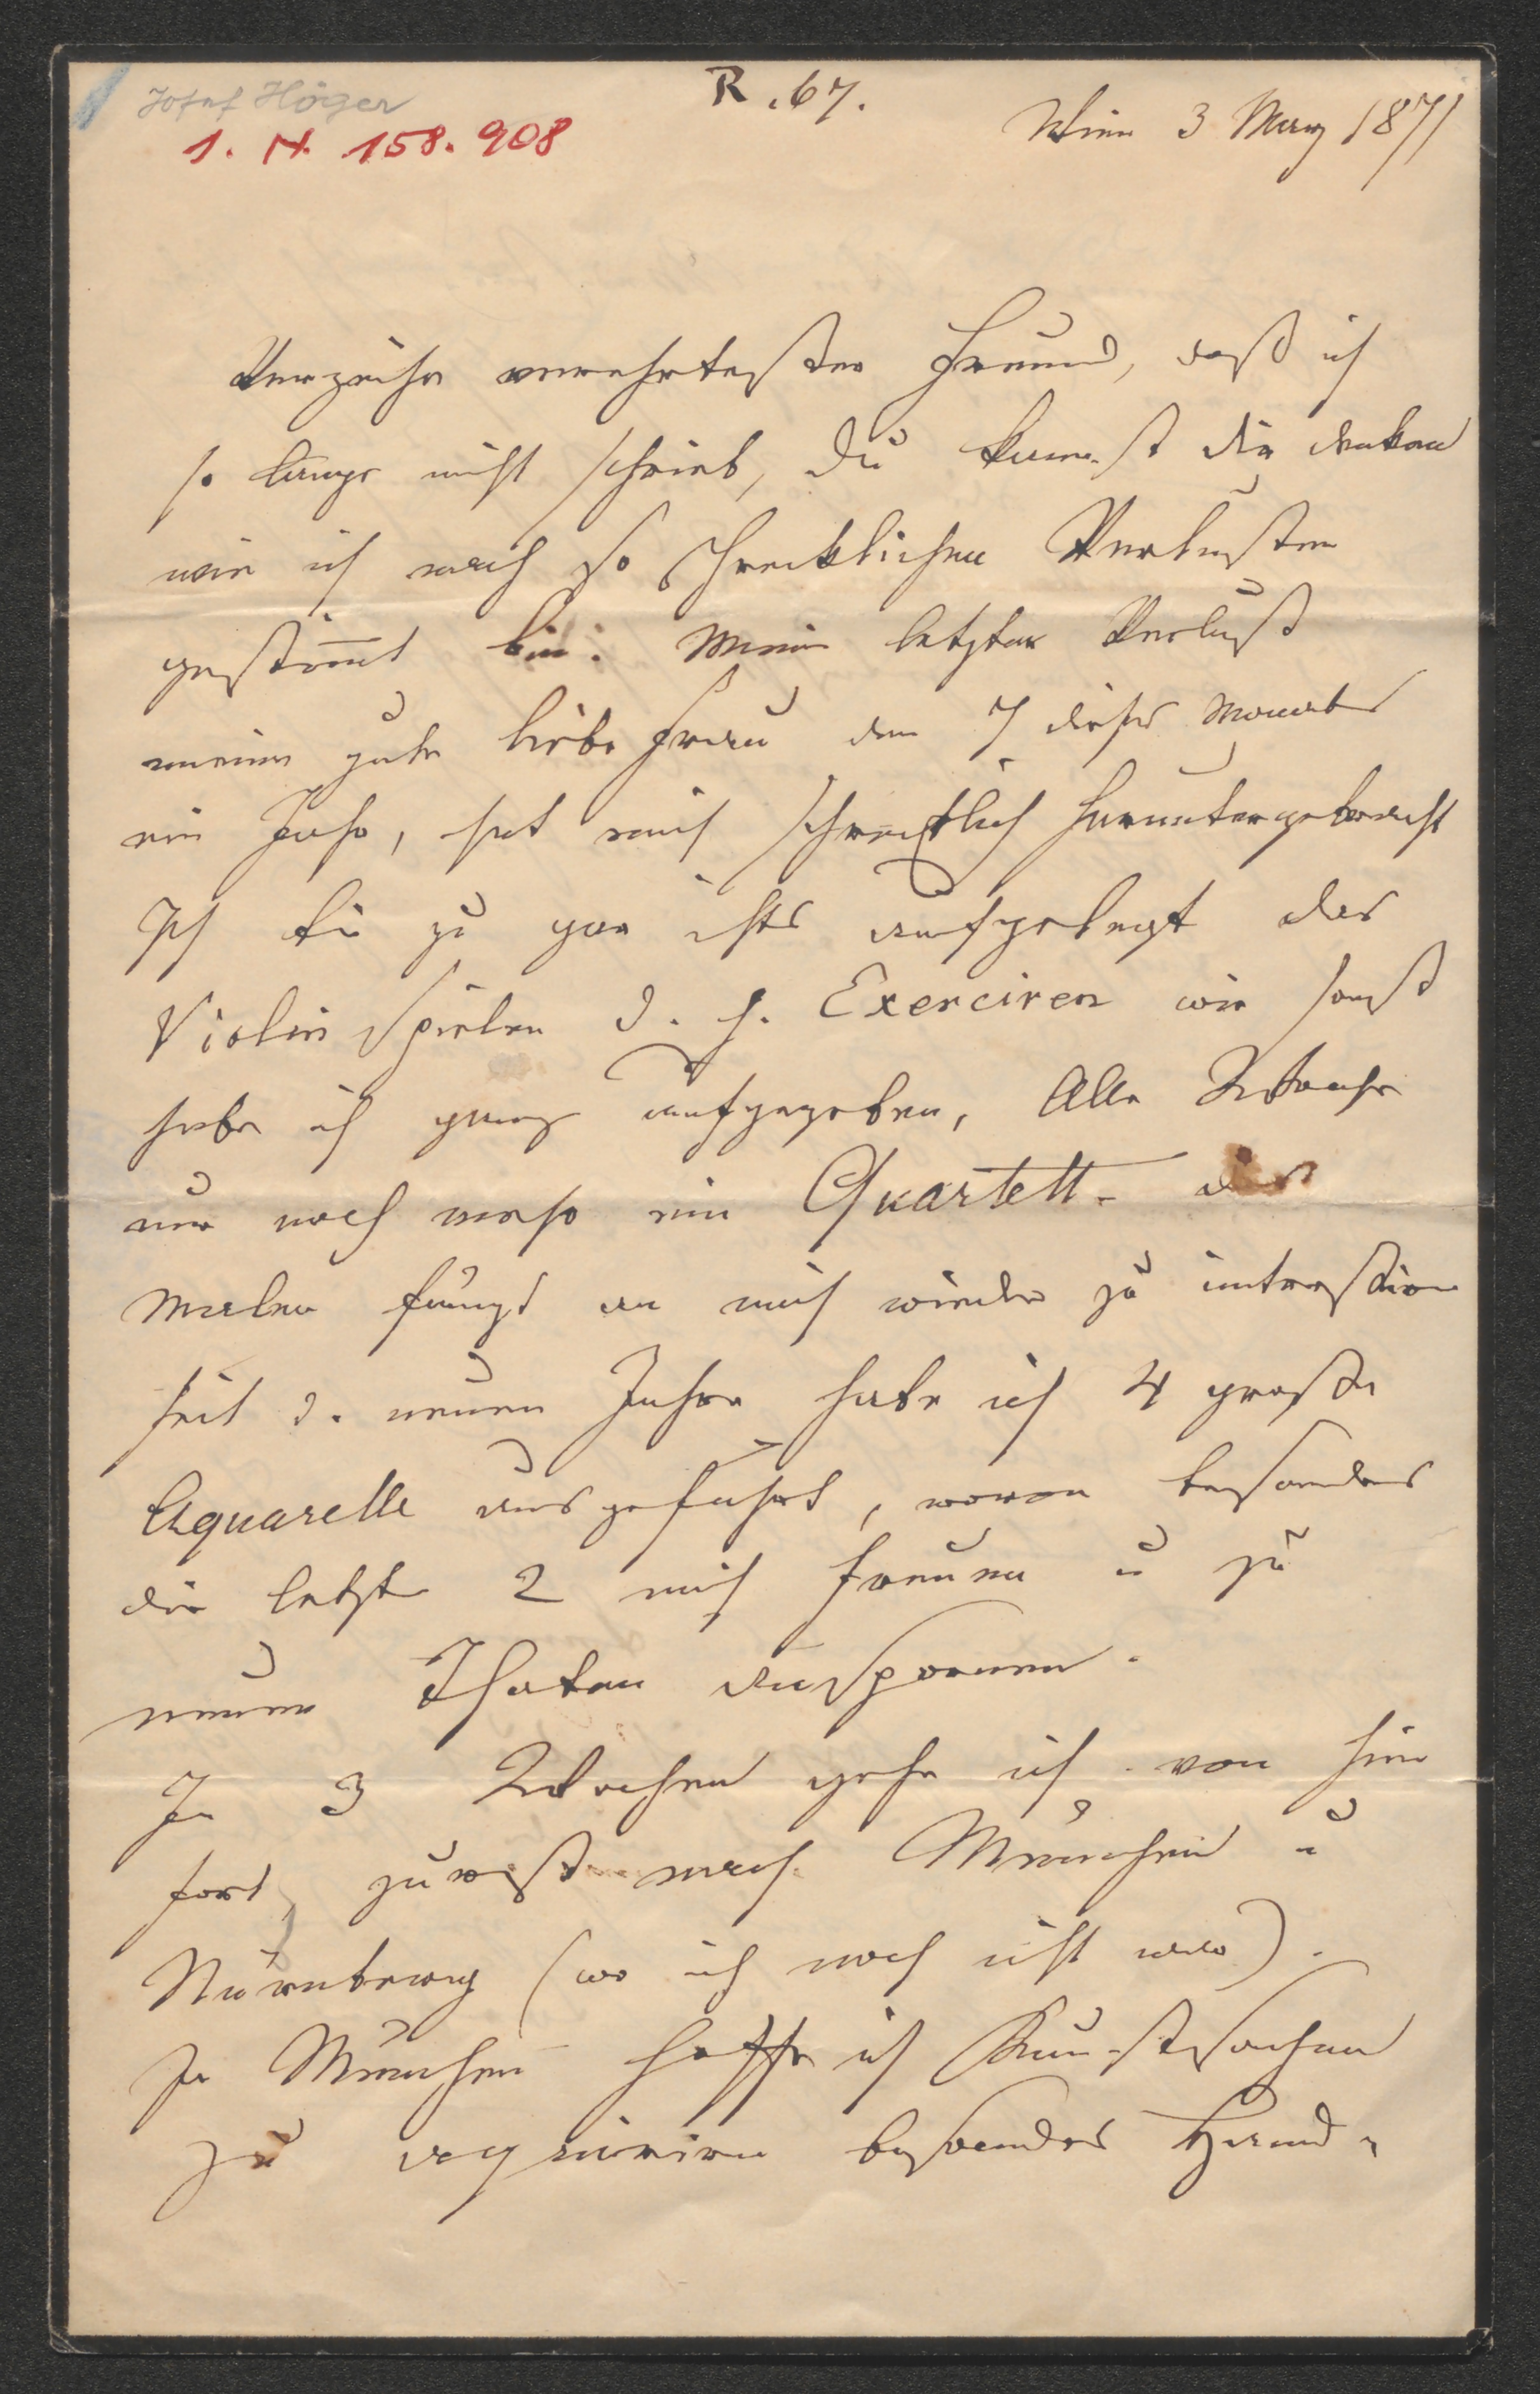 Josef Höger
R. 67.
Wien 3 März 1871
I. N. 158.908
Verzeihe verehrtester Freund, daß ich
so lange nicht schrieb, Du kannst Dir denken
wie ich nach so schrecklichen Verlusten
gestim̅t bin. Mein letzter Verlust
meine gute liebe Frau den 7 dieses Monats
ein Jahr, hat mich schrecklich heruntergebracht
Ich bin zu gar nichts aufgelegt das
Violin Spielen d. h. Exerciren wie sonst
habe ich ganz aufgegeben, Alle Woche
nur noch ein Quartett- das
Malen fängt an mich wieder zu
seit d. neuen Jahre habe ich 4 große
Aquarelle ausgeführt, wovon besonders
die letzten 2 mich freuen u zu
neuen Thaten anspornen.
In 3 Wochen gehe ich von hier
fort, zuerst nach München u
Nürnberg (wo ich noch nicht war).
In München hoffe ich Kunstsachen
zu acquiriren besonders Hand-